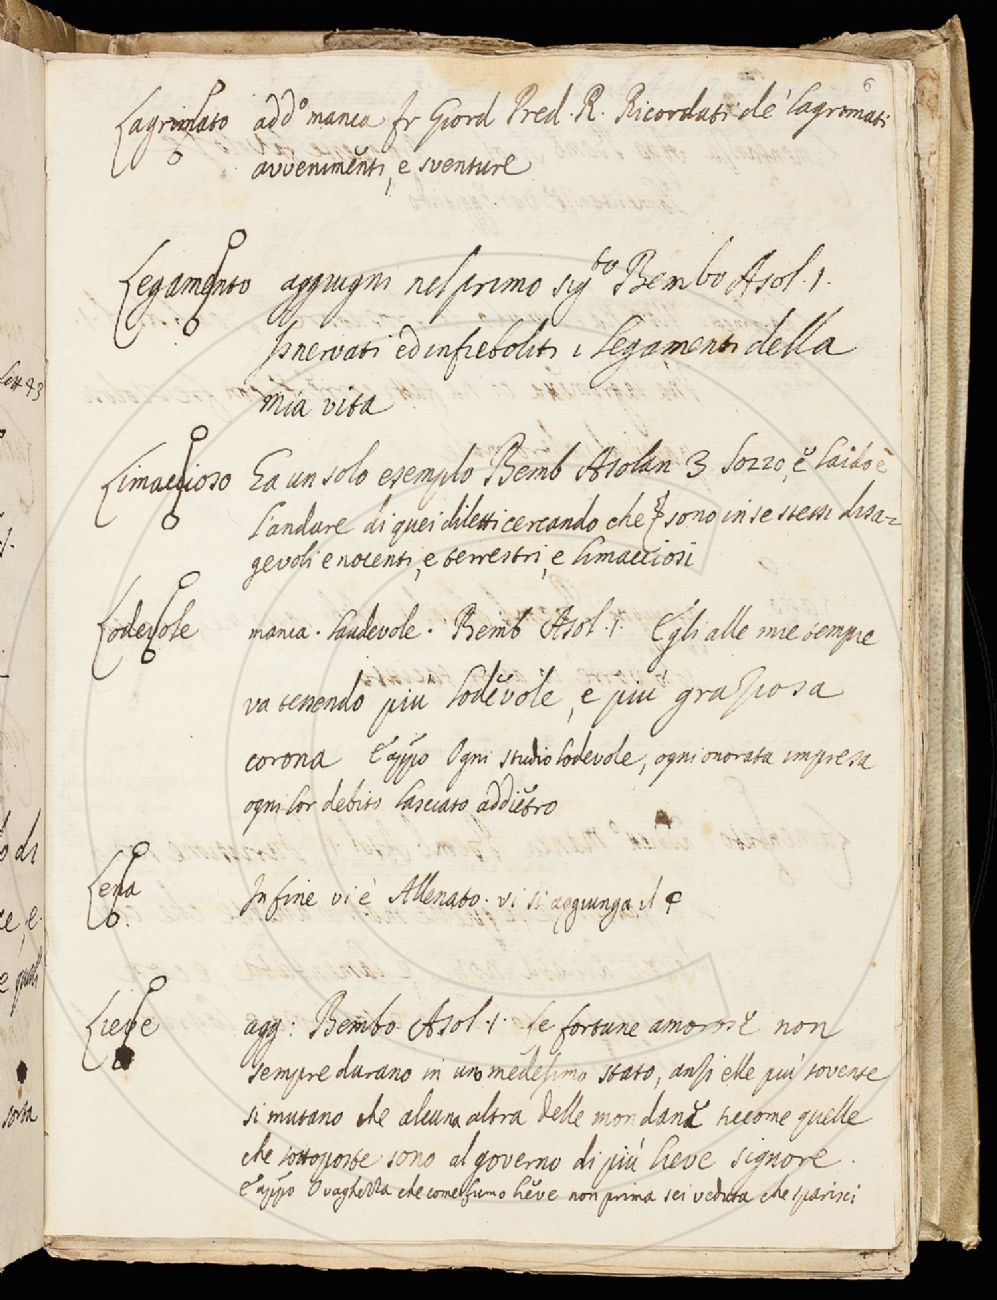 6
Lagrimato add.o manca fr Giord Pred. R. Ricordati de' lagrimati
avvenimenti, e sventure
Legamento aggiugni nel primo sig.to Bembo Asol. 1.
snervati ed infieboliti i legamenti della
mia vita
Limaccioso Ea un solo esempio Bemb Asolan 3 Sozzo, e laido è
l'andare di quei diletti cercando che sono in se stessi disa=
gevoli e nocenti, e terrestri, e limacciosi
Lodevole manca. laudevole. Bemb Asol. 1. Egli alle mie tempie
va tessendo piu lodevole, e piu graziosa
corona E appo Ogni studio lodevole, ogni onorata impresa
ogni lor debito lasciato addietro
Lena In fine vi è Allenato. vi si aggiunga il
Lieve agg: Bembo Asol. 1. le fortune amorose non
sempre durano in un medesimo stato, anzi elle più sovente
si mutano che alcuna altra delle mondane siccome quelle
che sottoposte sono al governo di più lieve signore.
E appo O vaghezza che come fumo lieve non prima sei veduta che sparisci
lett 43
o di
ce, e
e quelli
sorta